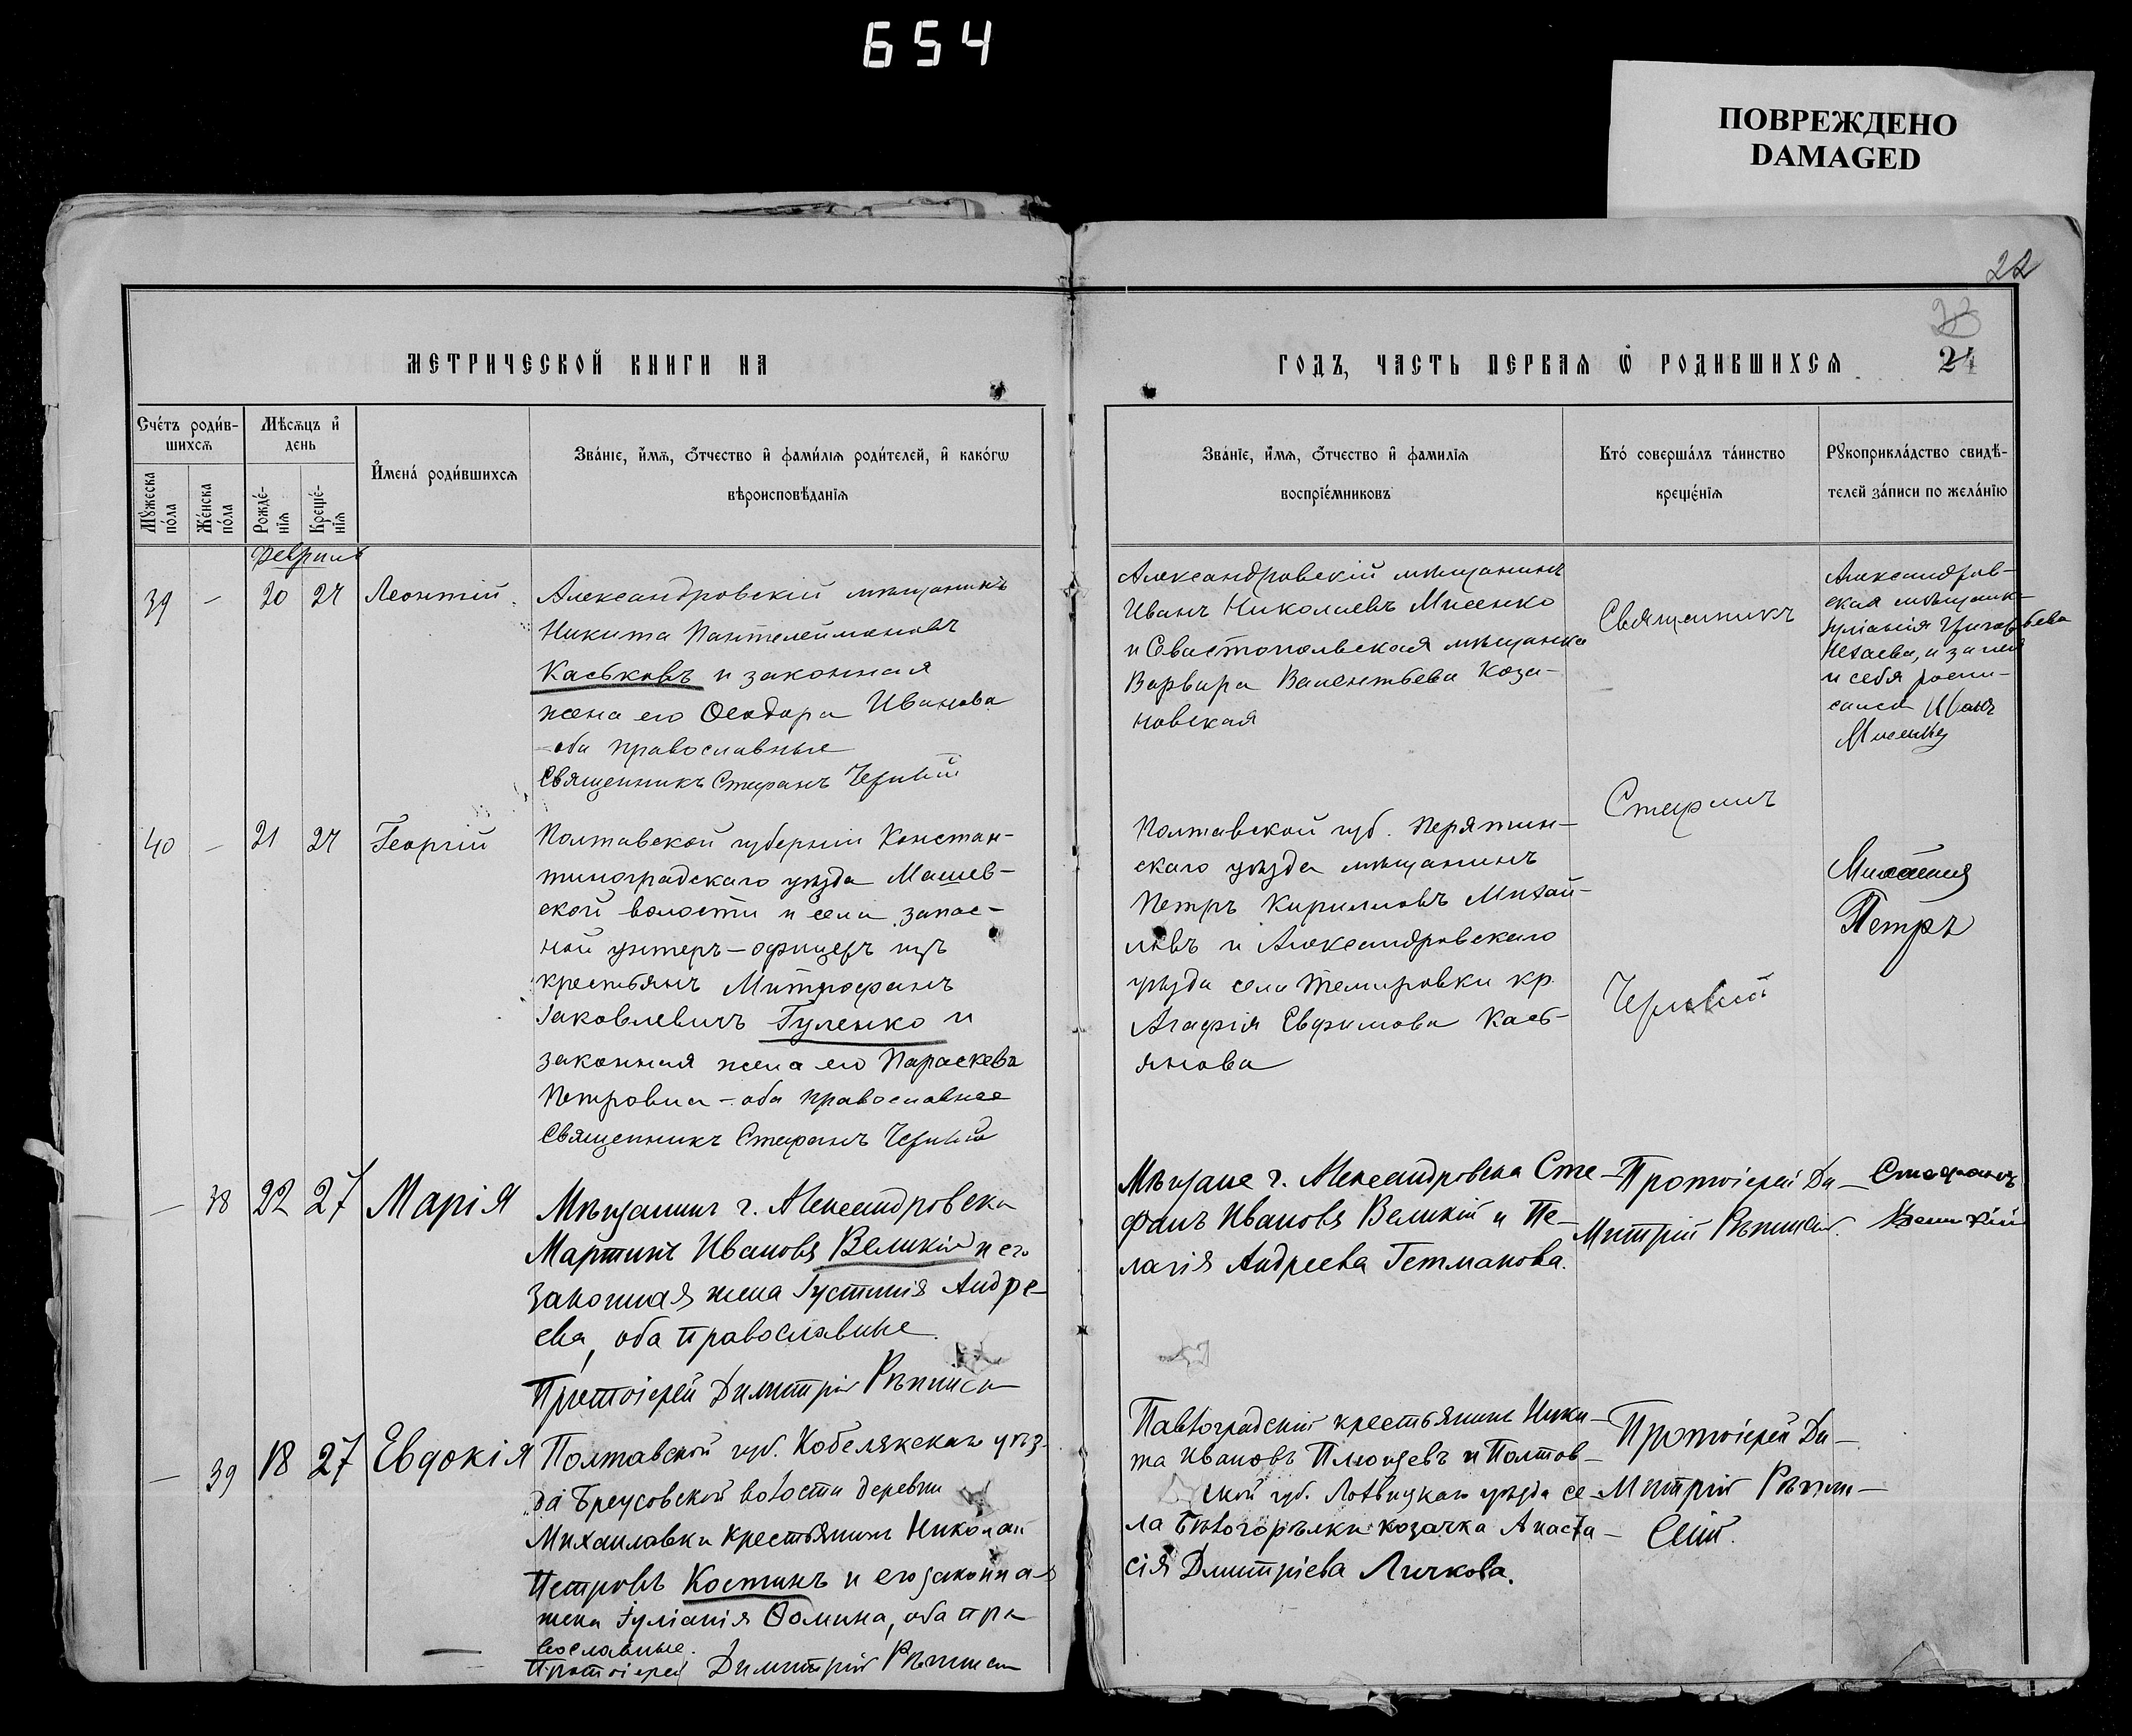 654
ПОВРЕЖДЕНО
DAMAGED
22
23
24
МЕТРИЧЕСКОЙ КНИГИ НА
ГОДЪ, ЧАСТЬ ПЕРВАЯ Ѡ РОДИВШИХСЯ
Счётъ роди́в-
шихсѧ
Мѣсяцъ и
день
Мꙋжеска
по́ла
Же́нска
по́ла
Рожде́-
нїѧ
Креще́-
нїѧ
И҆мена̀ роди́вшихсѧ
Зва́нїе, и҆́мѧ, ѻ҆́тчество и҆ фами́лїѧ роди́телей, и҆ како́гѡ
вѣроисповѣ́данїѧ
Зва́нїе, и҆́мѧ, ѻ҆́тчество и҆ фамилїѧ
воспрїе́мниковъ
Кто́ соверша́лъ та́инство
креще́нїѧ
Рꙋкоприкла́дство свидѣ́-
телей за́писи по жела́нїю
Февраль
39 — 20 24 Леонтій
Александровскій мѣщанинъ
Никита Пантелеймоновъ
Каськовъ и законная
жена его Ѳеодора Иванова
оба православные
Священникъ Стефанъ
Александровскій мѣщанинъ
Иванъ Николаевъ Мисенко
и Севастопольская мѣщанка
Варвара Валентьева Коза-
новская
Священникъ
Стефанъ
Александров-
ская мѣщанк-
Іуліанія Григорьева
Нехаева, и за нея
и себя роспи-
сался Иванъ
Мисенко
40 — 21 24 Георгій
Полтавской губерніи Констан-
тиноградскаго уѣзда Машев-
ской волости и села запас-
ной унтеръ-офицеръ изъ
крестьянъ Митрофанъ
Іаковлевичъ Гуленко и
законная жена его Параскева
Петровна - оба православные
Священникъ Стефанъ
Полтавской губ. Перятин-
скаго уѣзда мѣщанинъ
Петръ Кирилловъ Михай-
ловъ и Александровскаго
уѣзда села Темировки кр.
Агафія Евфимова Кась-
янова
Петръ
— 38 22 27 Марія
Мѣщанинъ г. Александровска
Мартинъ Ивановъ Великій и его
законная жена Іустинія Андре-
ева, оба православные.
Протоіерей Димитрій
Мѣщане г. Александровска Сте-
фанъ Ивановъ Великій и Пе-
лагія Андреева Гетманова.
Протоіерей Ди-
митрій
Стефанъ
Великій
— 39 18 27 Евдокія
Полтавской губ. Кобелякскаго уѣз-
да Бреусовской волости деревни
Михаиловки крестьянинъ Николай
Петровъ Костинъ и его законная
жена Іуліанія Ѳомина, оба пра-
вославные.
Протоіерей Димитрій
Павлоградскій крестьянинъ Ники-
та Ивановъ Плющевъ и Полтав-
ской губ. Лохвицкаго уѣзда се-
ла Бѣлогорѣлки козачка Анаста-
сія Дмитріева Личкова.
Протоіерей Ди-
митрій